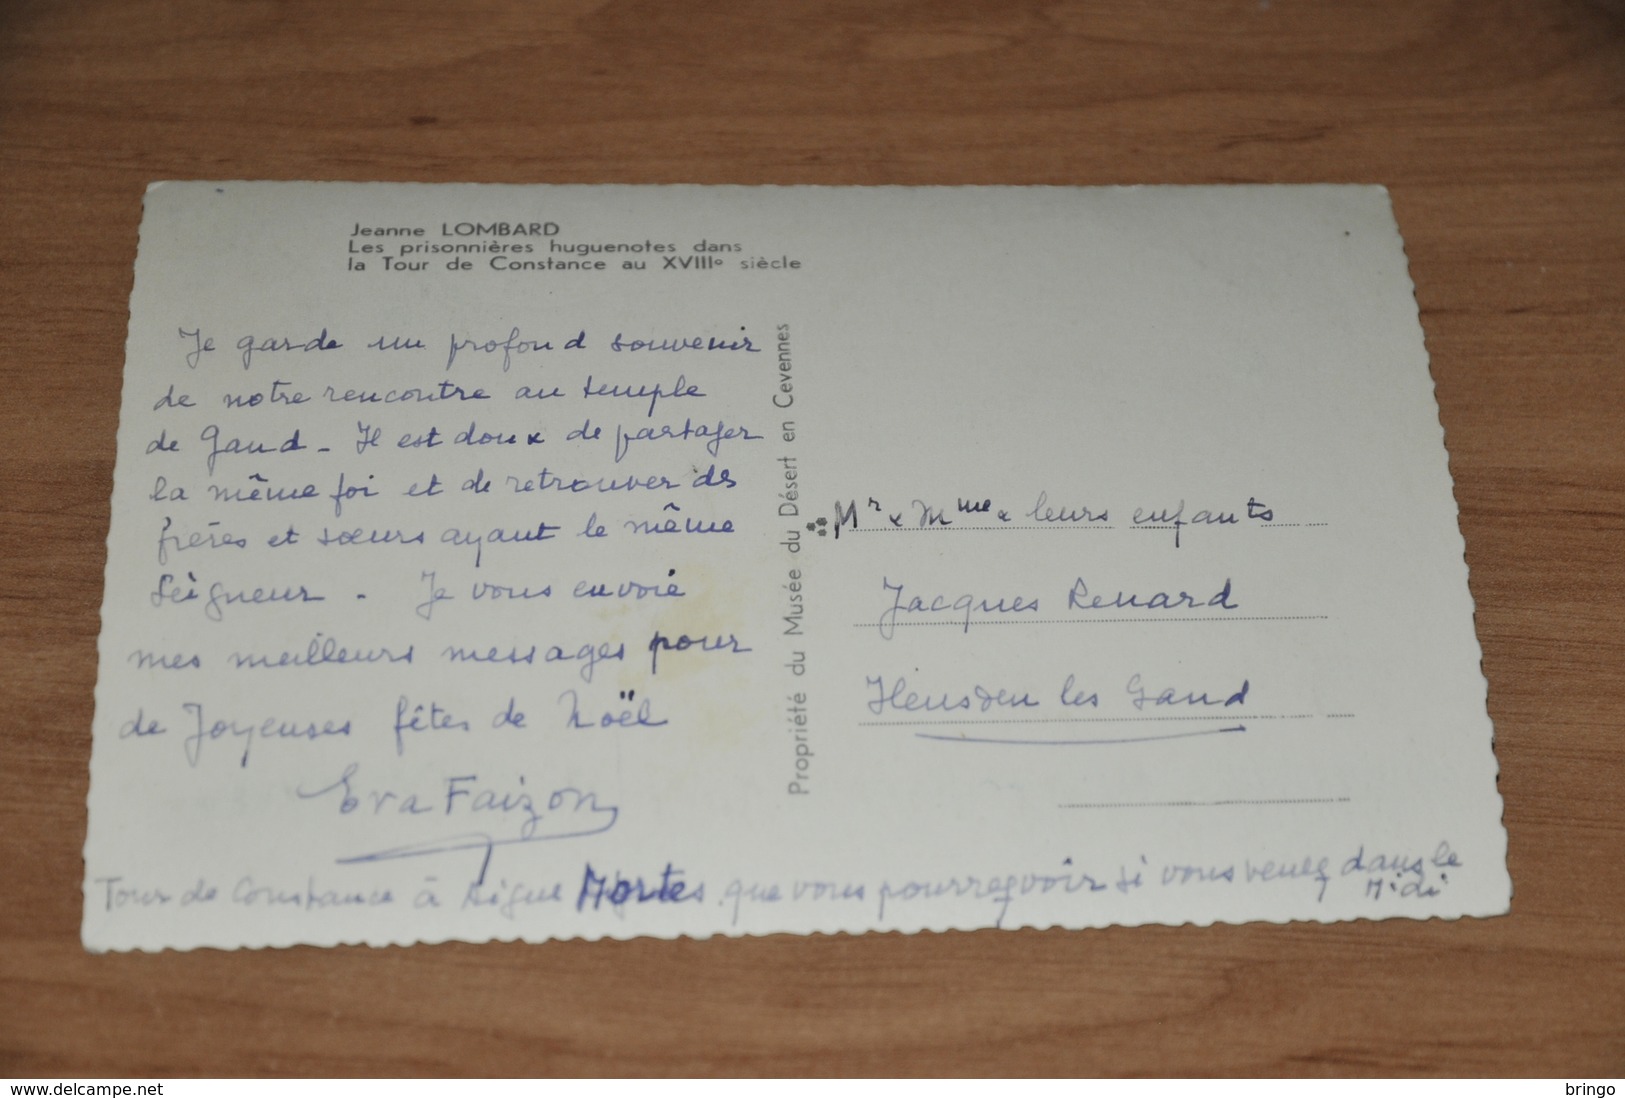 Jeanne LOMBARD
Les prisonnières huguenotes dans
la Tour de Constance au XVIIIe siècle
Je garde un profond souvenir
de notre rencontre au temple
de Gand - Il est doux de partager
la même foi et de retrouver des
frères et sœurs ayant le même
Seigneur - Je vous envoie
mes meilleurs messages pour
de Joyeuses fêtes de Noël
Eva Faizon
Tour de Constance à Aigue Mortes que vous pourrez voir si vous venez dans le
Midi
Propriété du Musée du Désert en Cevennes
Mr & Mme & leurs enfants
Jacques Renard
Heusden les Gand
delcampe.net
bringo